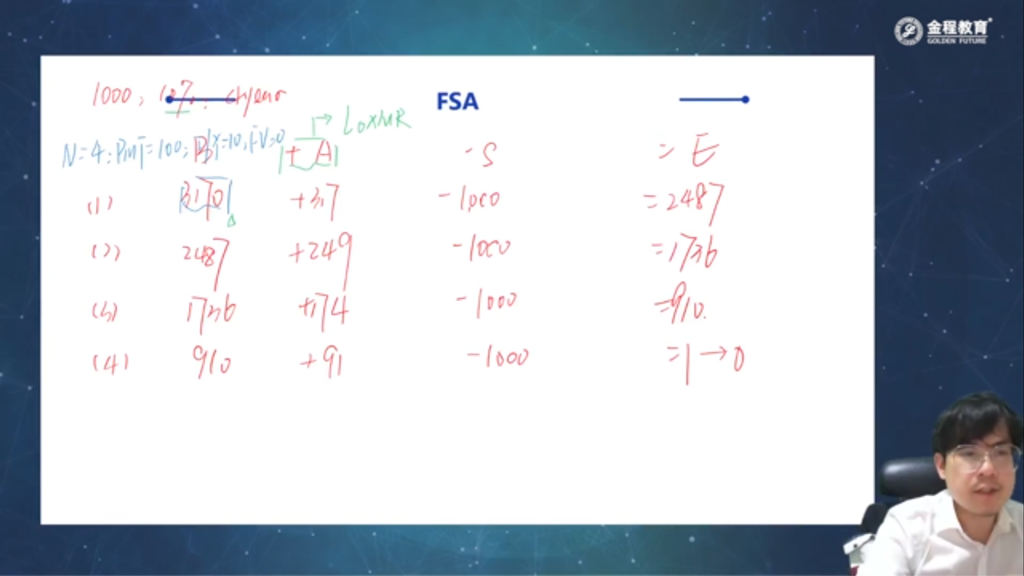 金程教育
GOLDEN FUTURE
1000, 10%, 4years
FSA
→ L0×MR
N=4; PMT=100; I/Y=10, FV=0
B + A - S = E
(1) 3170 +317 -1000 =2487
(2) 2487 +249 -1000 =1736
(3) 1736 +174 -1000 =910.
(4) 910 +91 -1000 =1→0